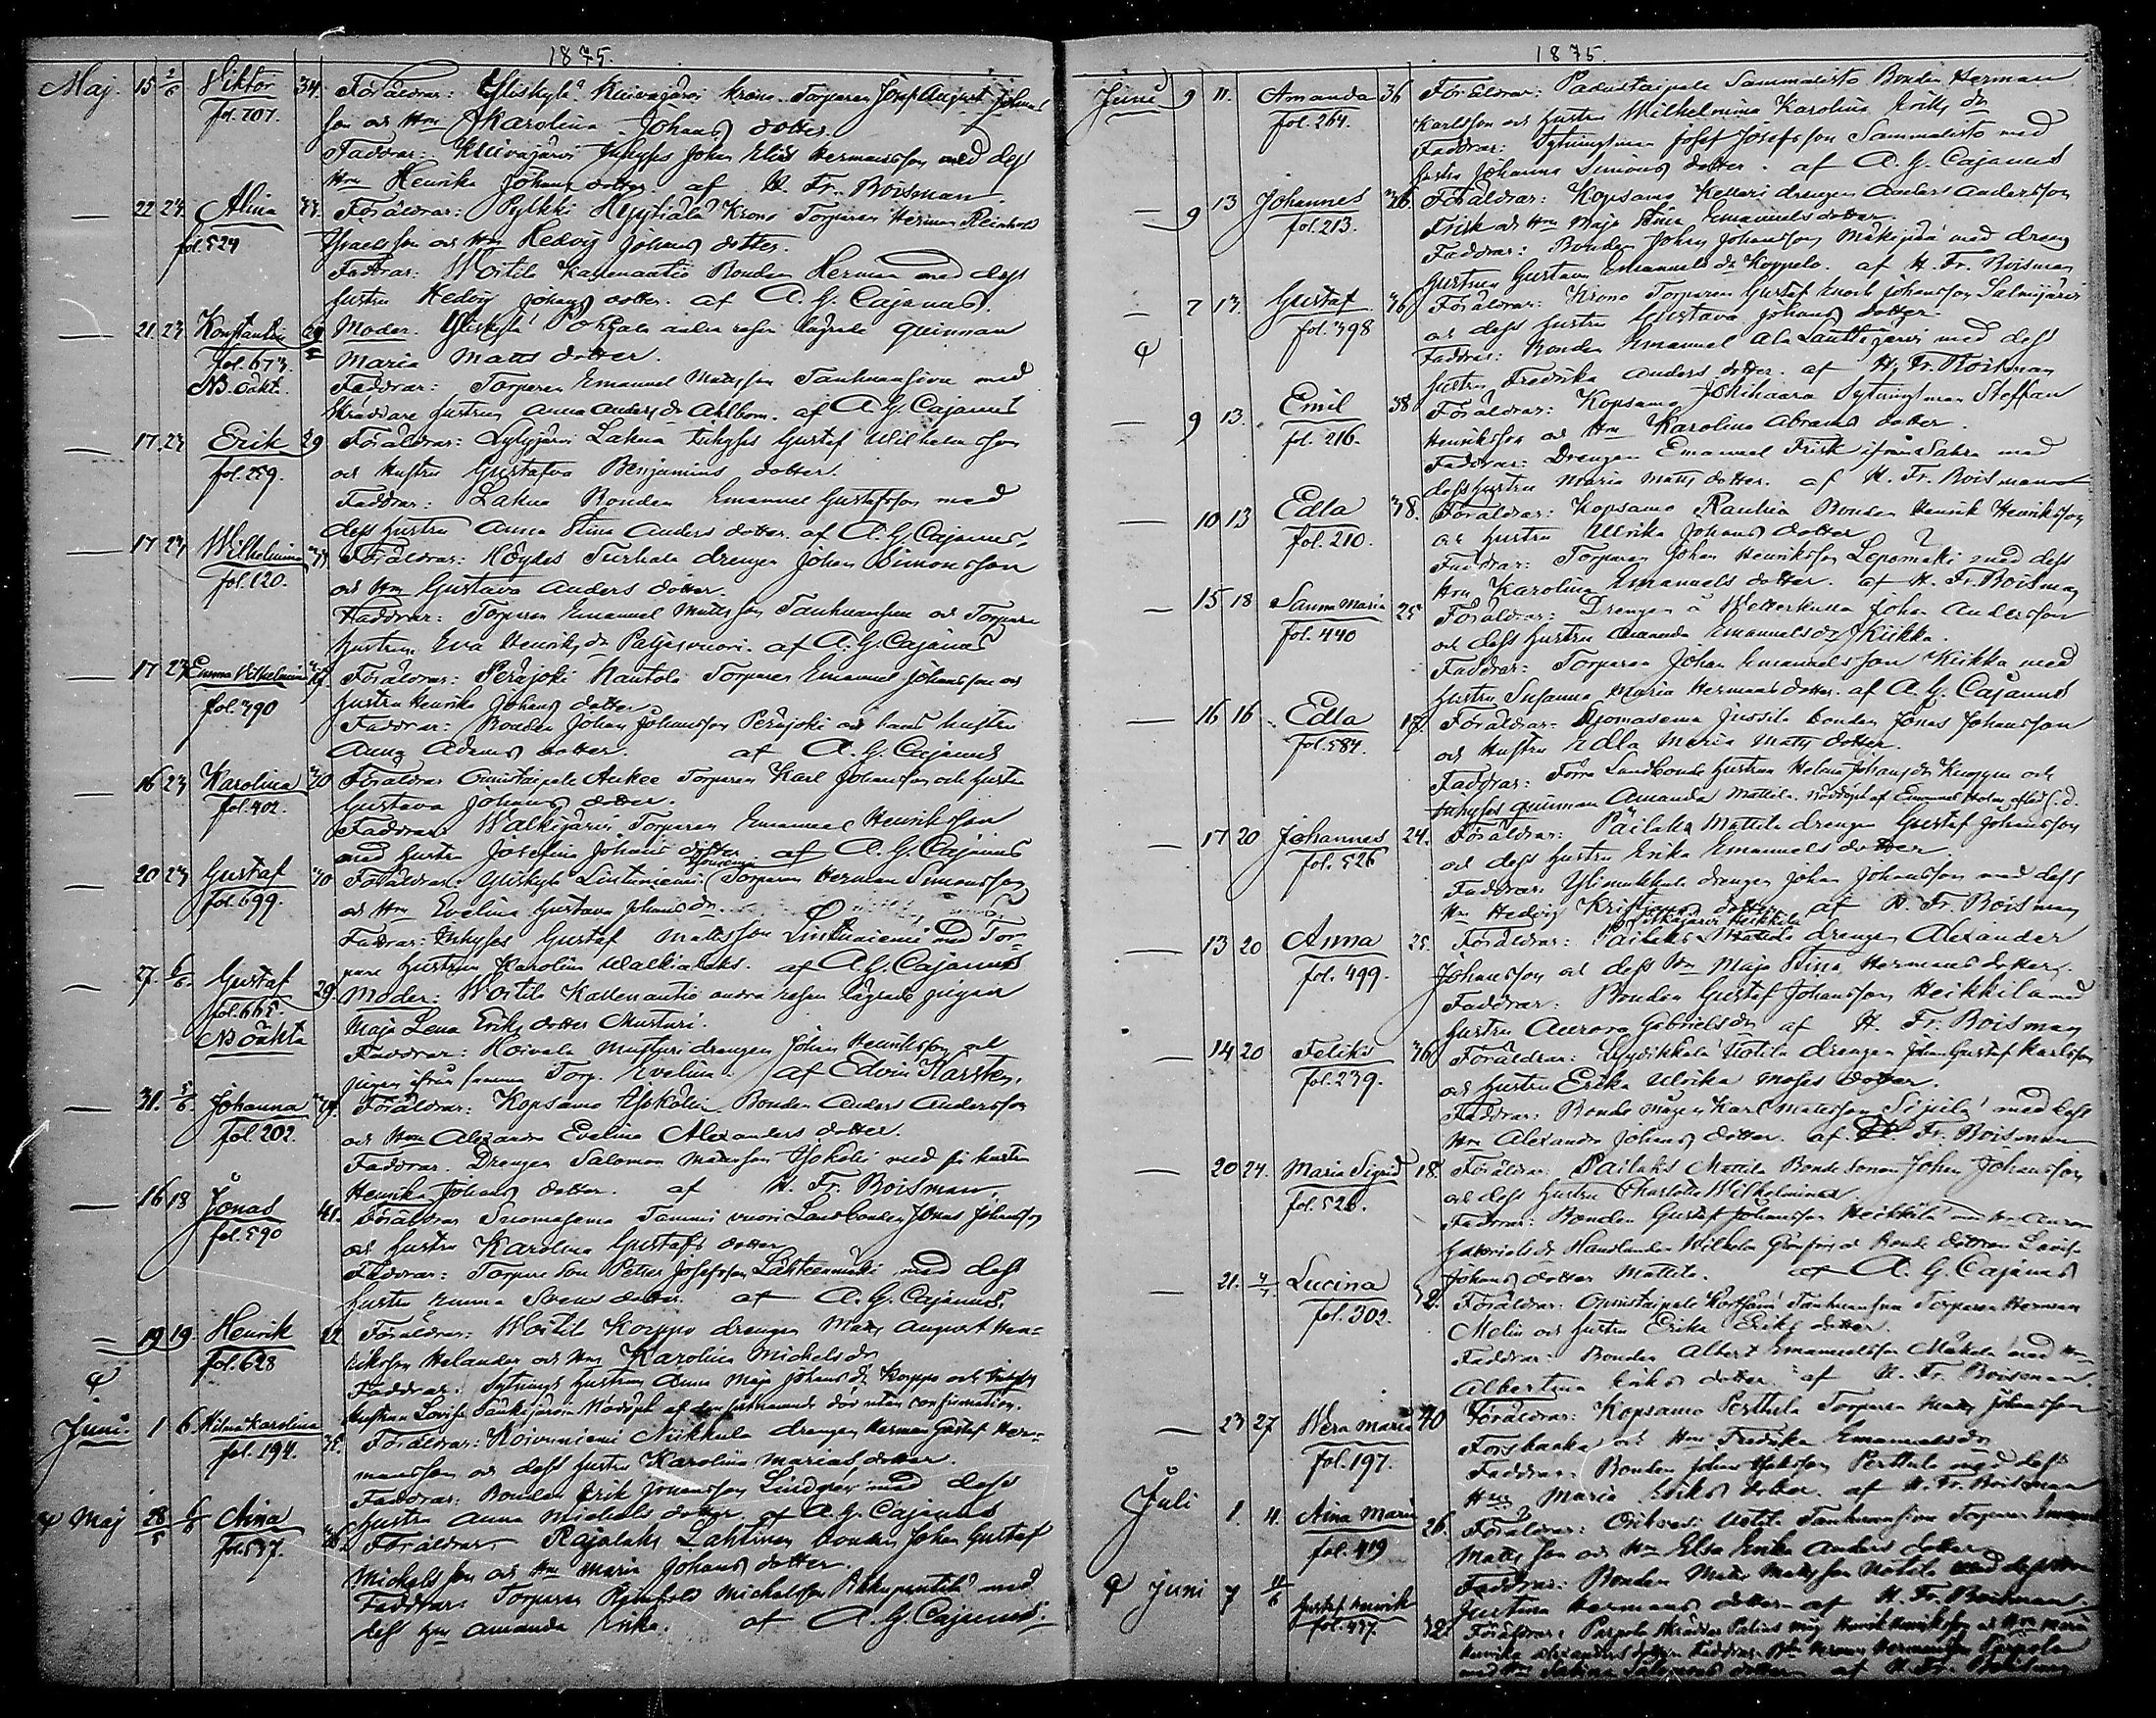 1875.
Maj. 15 2/6 Viktor 34. Föräldrar: Yliskylä Kuivajärvi krono Torparen Josef August Johans
fol. 707. son och Hru Karolina Johans dotter.
Faddrar: Kuivajärvi Inhyses Johan Elias Hermansson med dess
Hru Henrika Johans dotter. af H. Fr. Boisman.
— 22 23 Alina 33. Föräldrar: Pylkki Krono Torparen Herman Reinhold
fol. 524 son och Hru Hedvig Johans dotter.
Faddrar: Woitila Kallenautio Bonden Herman med dess
hustru Hedvig Johans dotter. af A. G. Cajanus.
— 21. 23 Konstantin 29 Moder. Yliskylä Pohjala andra resan lägrade quinnan
fol. 673. Maria Matts dotter.
NB oäkta. Faddrar: Torparen Emanuel Mattsson Tanhuansivu med
Skräddare hustrun Anna Anders dr Ahlbom. af A. G. Cajanus
— 17. 23 Erik 29 Föräldrar: Syljärvi Lahna Inhyses Gustaf Wilhelmsson
fol. 259. och Hustru Gustafva Benjamins dotter.
Faddrar: Lahna Bonden Emanuel Gustafsson med
dess hustru Anna Stina Anders dotter. af A. G. Cajanus.
— 17 23 Wilhelmina Föräldrar: Turhala drengen Johan Simonsson
fol. 120. och Hru Gustava Anders dotter.
Faddrar: Torparen Emanuel Mattsson Tanhuansivu och Torpare
hustrun Eva Henriks dr Patjasvuori. af A. G. Cajanus
— 17 23 Emma Wilhelmina Föräldrar: Peräjoki Rautola Torparen Emanuel Johansson och
fol. 390 hustru Henrika Johans dotter
Faddrar: Bonden Johan Johansson Peräjoki och hans hustru
Anna Adams dotter. af A. G. Cajanus
— 16 23 Karolina 30 Föräldrar Onnistaipale Torparen Karl Johansson och hustru
fol. 402. Gustava Johans dotter.
Faddrar: Walkijärvi Torparen Emanuel Henriksson
med hustru Josefina Johans dotter af A. G. Cajanus
— 20 23 Gustaf 30 Föräldrar: Yliskylä Lintuniemi Torparen Herman Simonsson
fol. 699. och Hru Evelina Gustava Johans dr.
Faddrar: Inhyses Gustaf Mattsson Lintuniemi med Tor-
pare hustrun Karolina Walkialaks. af A. G. Cajanus
— 27. 6/6. Gustaf 29. Moder: Woitila Kallenautio andra resan lägrade pigan
fol. 665. Maja Lena Eriks dotter Musturi.
NB oäkta Faddrar: Koivula Musturi drengen Johan Henriksson och
pigan ifrån samma Torp. Evelina. af Edvin Karsten.
— 31. 5/6 Johanna Föräldrar: Kopsamo Yskäli Bonden Anders Andersson
fol. 202. och Hru Alexandra Evelina Alexanders dotter.
Faddrar. Drengen Salomon Mattsson med sin hustru
Henrika Johans dotter. af H. Fr. Boisman.
— 16 18 Jonas 41. Föräldrar Suomasema Tammi vuori Landbonden Jonas Johansson
fol. 590 och hustru Karolina Gustafs dotter
Faddrar: Torpare Son Petter Josefsson Lähteenmäki med dess
hustru Emma Svens dotter. af A. G. Cajanus.
— 19 19. Henrik 22 Föräldrar: Woitila Korppo drengen Matts August Hen-
fol. 628 riksson Helander och Hru Karolina Michels dr
Faddrar: Sytnings hustrun Anna Maja Johans dr Korppo och Inhyses
hustrun Lovisa Nöddöpt af den förstnämnde dör utan confirmation.
Juni. 1 6 Hilma Karolina 35. Föräldrar: Koivuniemi Niikkula drengen Herman Gustaf Her-
fol. 194. mansson och dess hustru Karolina Marias dotter.
Faddrar: Bonden Erik Johansson Lindqvist med dess
hustru Anna Michels dotter. af A. G. Cajanus
Maj 28/5 6/6 Aina Föräldrar Rajalaks Lahtinen bonden Johan Gustaf
fol. 537. Michelsson och Hru Maria Johans dotter.
Faddrar: Torparen Reinhold Michelsson med
dess Hru Amanda Erika. af A. G. Cajanus.
1875.
Juni 9 11. Amanda 36 Föräldrar: Padustaipale Sammalisto Bonden Herman
fol. 264. Karlsson och hustru Wilhelmina Karolina Eriks dr
Faddrar: Sytningsman Josef Josefsson Sammalisto med
hustru Johanna Simons dotter. af A. G. Cajanus
— 9 13 Johannes 26 Föräldrar: Kopsamo Kellari drengen Anders Andersson
fol. 213. Frisk och Hru Maja Stina Emanuels dotter.
Faddrar: Bonden Johan Johansson Mäkipää med dreng
hustrun Gustava Emanuels dr Koppelo. af H. Fr. Boisman
— 7 13. Gustaf 36 Föräldrar: Krono Torparen Gustaf Enock Johansson Salmijärvi
fol. 398 och dess hustru Gustava Johans dotter.
Faddrar: Bonden Emanuel Ala Lauttajärvi med dess
hustru Fredrika Anders dotter. af H. Fr. Boisman
— 9 13. Emil 38 Föräldrar: Kopsamo Jokihaara Sytningsman Steffan
fol. 216. Henriksson och Hru Karolina Abrams dotter.
Faddrar: Drengen Emanuel Frisk ifrån Sahra med
dess hustru Maria Matts dotter. af H. Fr. Boisman
— 10 13 Edla 38. Föräldrar: Kopsamo Rauhia Bonden Henrik Henriksson
fol. 210. och hustru Ulrika Johans dotter
Faddrar: Torparen Johan Henriksson Lepomäki med dess
Hru Karolina Emanuels dotter. af H. Fr. Boisman
— 15 18 Sanna Maria 25 Föräldrar: Drengen å Wetterkulla Johan Andersson
fol. 440 och dess hustru Amanda Emanuels dr Kiikka.
Faddrar: Torparen Johan Emanuelsson Kiikka med
hustru Susanna Maria Hermans dotter. af A. G. Cajanus
— 16 16 Edla Föräldrar: Suomasema Jussila bonden Jonas Johansson
fol. 584. och Hustru Edla Maria Matts dotter.
Faddrar: Förra Landbonde hustrun Helena Johans dr och
Inhyses quinnan Amanda Mattila. Nöddöpt af Emanuel Holm afled s. d.
— 17 20 Johannes 24. Föräldrar: Päilaks Mattila drengen Gustaf Johansson
fol. 526 och dess hustru Erika Emanuels dotter
Faddrar: Ylinikkula drengen Johan Johansson med dess
Hru Hedvig Kristians dotter. af H. Fr. Boisman
— 13 20 Anna 25. Föräldrar: Päilaks Mattila drengen Alexander
fol. 499. Johansson och dess Hru Maja Stina Hermans dotter.
Faddrar: Bonden Gustaf Johansson Heikkilä med
hustru Aurora Gabriels dr af H. Fr. Boisman
— 14 20 Feliks 36 Föräldrar: Syydikkälä Uotila drengen Johan Gustaf Karlsson
fol. 239. och hustru Erika Ulrika Moses dotter.
Faddrar: Bonde mågen Karl Mattsson Sipilä med dess
Hru Alexandra Johans dotter. af H. Fr. Boisman
— 20 24. Maria Sigrid 18. Föräldrar: Päilaks Mattila Bonde Sonen Johan Johansson
fol. 526. och dess hustru Charlotta Wilhelmina
Faddrar: Bonden Gustaf Johansson Heikkilä med Hru Aurora
Gabriels dr Handlanden Wilhelm och Bonde dottren Lovisa
Johans dotter Mattila. af A. G. Cajanus
— 21. 4/7. Lucina Föräldrar: Onnistaipale Tanhuansuu Torparen Herman
fol. 302. Melin och hustru Erika Eriks dotter.
Faddrar: Bonden Albert Emanuelsson Mäkelä med Hru
Albertina Eriks dotter af H. Fr. Boisman.
— 23 27 Wera Maria 40 Föräldrar: Kopsamo Perttula Torparen Matts Johansson
fol. 197. Forsbacka och Hru Fredrika Emanuels dr
Faddrar: Bonden Johan Perttula med dess
Hru Maria Eriks dotter. af H. Fr. Boisman
Juli 1. 4. Aina Maria 26. Föräldrar: Uotila Tanhuansivu Torparen Emanuel
fol. 419 Mattsson och Hru Elsa Erika Anders dotter
Faddrar: Bonden Matts Mattsson Uotila med dess Hru
Justina Hermans dotter af H. Fr. Boisman
Juni 7 11/6 Gustaf Henrik 32. Föräldrar: Parpola Skräddar måg Henrik Henriksson och Hru Maria
fol. 437. Henrika Alexanders dotter Faddrar: Herman Hermansson Parpola
med Hru Salomons dotter af H. Fr. Boisman